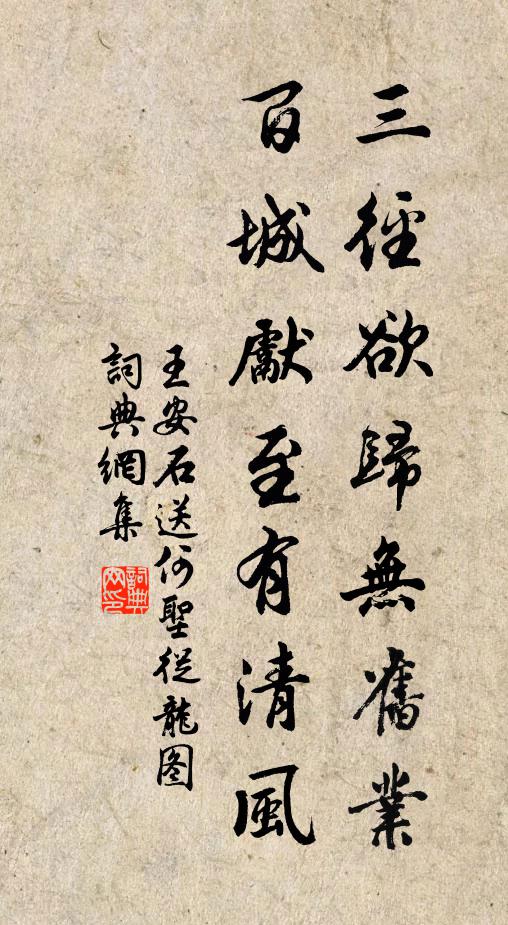 三徑欲歸無舊業
百城獻至有清風
王安石送何聖從龍图
詞典網集
詞典
网印